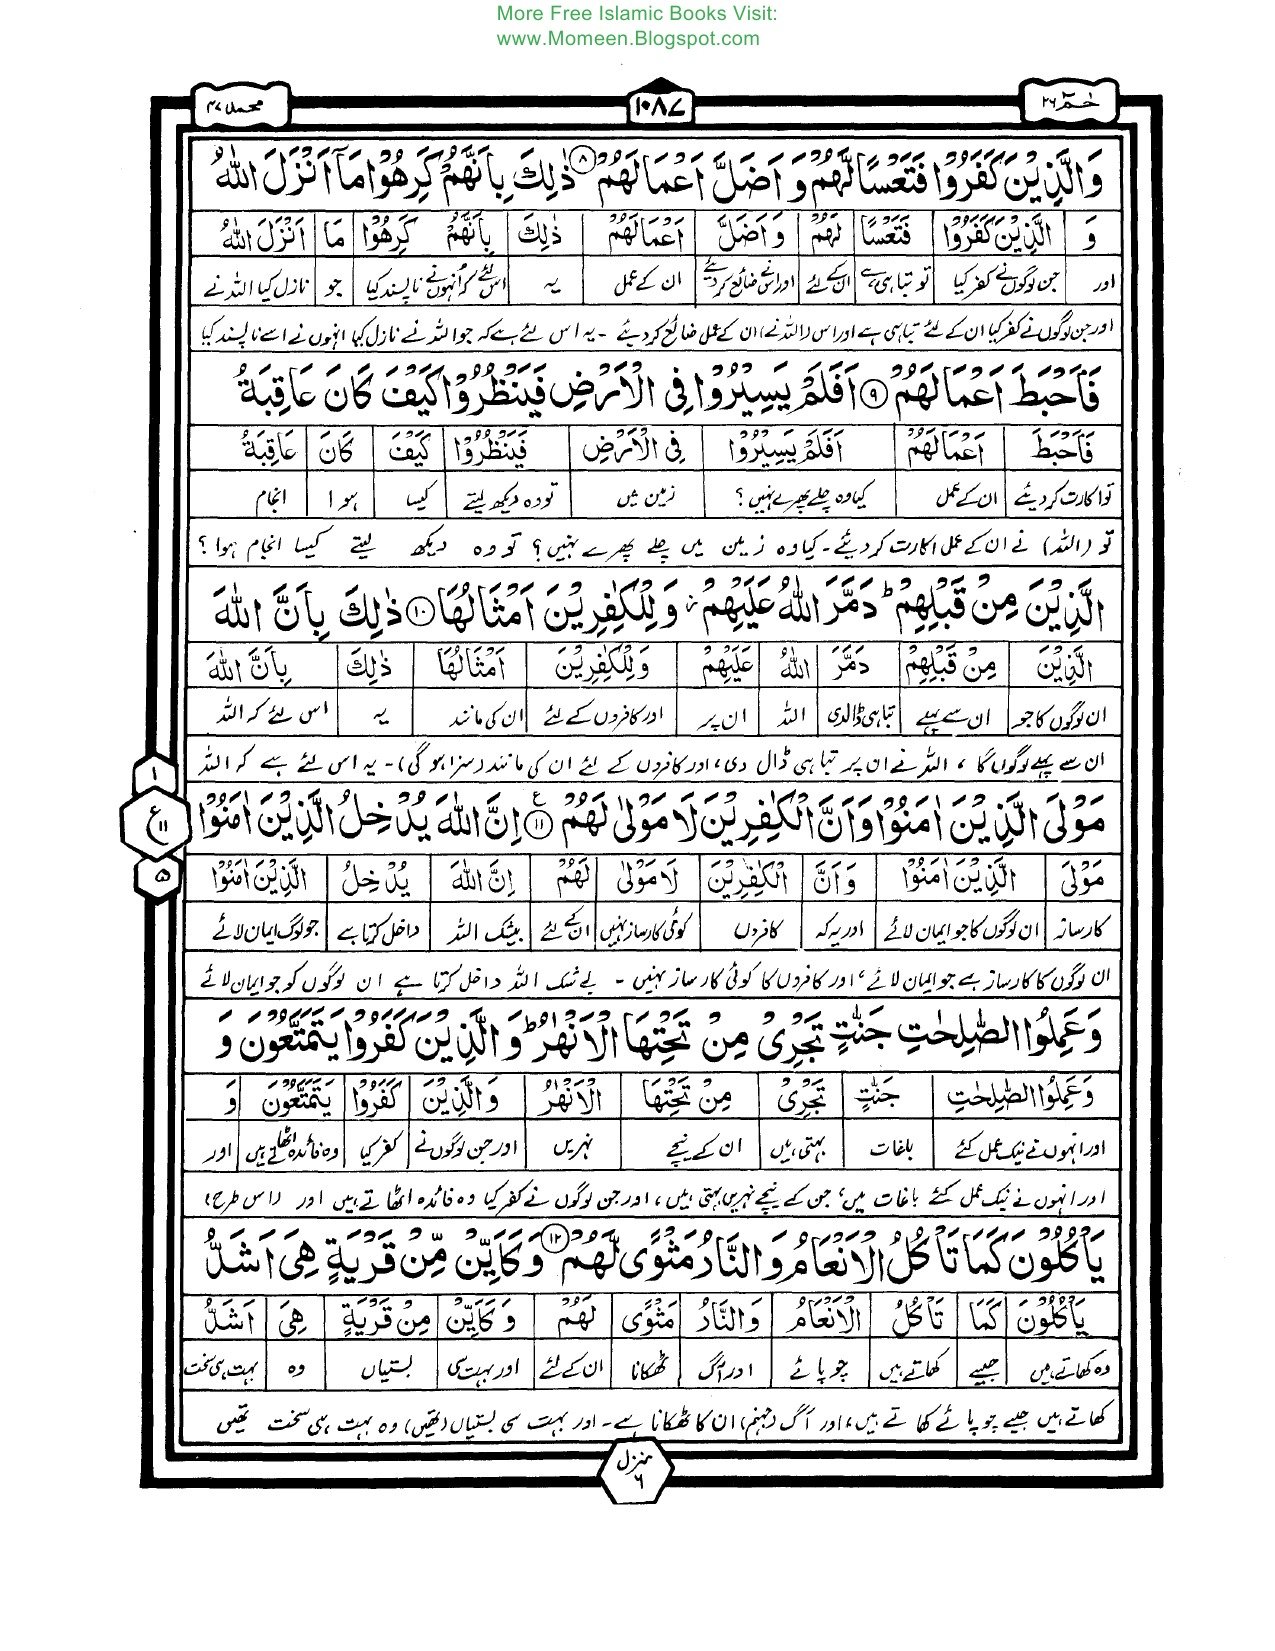 More Free Islamic Books Visit:
www.Momeen.Blogspot.com
حٰمٓ ۲۶
۱۰۸۷
محمد ۴۷
وَالَّذِيْنَ كَفَرُوْا فَتَعْسًا لَّهُمْ وَاَضَلَّ اَعْمَالَهُمْ ۸ ذٰلِكَ بِاَنَّهُمْ كَرِهُوْا مَآ اَنْزَلَ اللّٰهُ
وَ الَّذِيْنَ كَفَرُوْا فَتَعْسًا لَهُمْ وَاَضَلَّ اَعْمَالَهُمْ ذٰلِكَ بِاَنَّهُمْ كَرِهُوْا مَا اَنْزَلَ اللّٰهُ
اور جن لوگوں نے کفر کیا تو تباہی ہے ان کے لئے اور اس نے ضائع کر دیئے ان کے عمل یہ اس لئے کہ انہوں نے ناپسند کیا جو نازل کیا اللہ نے
اور جن لوگوں نے کفر کیا ان کے لئے تباہی ہے اور اس (اللہ نے) ان کے عمل ضائع کر دیئے ۔ یہ اس لئے ہے کہ جو اللہ نے نازل کیا انہوں نے اسے ناپسند کیا
فَاَحْبَطَ اَعْمَالَهُمْ ۹ اَفَلَمْ يَسِيْرُوْا فِى الْاَرْضِ فَيَنْظُرُوْا كَيْفَ كَانَ عَاقِبَةُ
فَاَحْبَطَ اَعْمَالَهُمْ اَفَلَمْ يَسِيْرُوْا فِى الْاَرْضِ فَيَنْظُرُوْا كَيْفَ كَانَ عَاقِبَةُ
تو اکارت کر دیئے ان کے عمل کیا وہ چلے پھرے نہیں ؟ زمین میں تو وہ دیکھ لیتے کیسا ہوا انجام
تو (اللہ) نے ان کے عمل اکارت کر دیئے ۔ کیا وہ زمین میں چلے پھرے نہیں ؟ تو وہ دیکھ لیتے کیسا انجام ہوا ؟
الَّذِيْنَ مِنْ قَبْلِهِمْ ؕ دَمَّرَ اللّٰهُ عَلَيْهِمْ ؗ وَلِلْكٰفِرِيْنَ اَمْثَالُهَا ۱۰ ذٰلِكَ بِاَنَّ اللّٰهَ
الَّذِيْنَ مِنْ قَبْلِهِمْ دَمَّرَ اللّٰهُ عَلَيْهِمْ وَلِلْكٰفِرِيْنَ اَمْثَالُهَا ذٰلِكَ بِاَنَّ اللّٰهَ
ان لوگوں کا جو ان سے پہلے تباہی ڈالدی اللہ ان پر اور کافروں کے لئے ان کی مانند یہ اس لئے کہ اللہ
ان سے پہلے لوگوں کا ، اللہ نے ان پر تباہی ڈال دی ، اور کافروں کے لئے ان کی مانند (سزا ہو گی) ۔ یہ اس لئے ہے کہ اللہ
۱
ع ۱۱
۵
مَوْلَى الَّذِيْنَ اٰمَنُوْا وَاَنَّ الْكٰفِرِيْنَ لَا مَوْلٰى لَهُمْ ۱۱ ع اِنَّ اللّٰهَ يُدْخِلُ الَّذِيْنَ اٰمَنُوْا
مَوْلَى الَّذِيْنَ اٰمَنُوْا وَاَنَّ الْكٰفِرِيْنَ لَا مَوْلٰى لَهُمْ اِنَّ اللّٰهَ يُدْخِلُ الَّذِيْنَ اٰمَنُوْا
کارساز ان لوگوں کا جو ایمان لائے اور یہ کہ کافروں کوئی کارساز نہیں ان کے لئے بیشک اللہ داخل کرتا ہے جو لوگ ایمان لائے
ان لوگوں کا کارساز ہے جو ایمان لائے ، اور کافروں کا کوئی کارساز نہیں ۔ بے شک اللہ داخل کرتا ہے ان لوگوں کو جو ایمان لائے
وَعَمِلُوا الصّٰلِحٰتِ جَنّٰتٍ تَجْرِىْ مِنْ تَحْتِهَا الْاَنْهٰرُ ؕ وَالَّذِيْنَ كَفَرُوْا يَتَمَتَّعُوْنَ وَ
وَعَمِلُوا الصّٰلِحٰتِ جَنّٰتٍ تَجْرِىْ مِنْ تَحْتِهَا الْاَنْهٰرُ وَالَّذِيْنَ كَفَرُوْا يَتَمَتَّعُوْنَ وَ
اور انہوں نے نیک عمل کئے باغات بہتی ہیں ان کے نیچے نہریں اور جن لوگوں نے کفر کیا وہ فائدہ اٹھاتے ہیں اور
اور انہوں نے نیک عمل کئے باغات میں ، جن کے نیچے نہریں بہتی ہیں ، اور جن لوگوں نے کفر کیا وہ فائدہ اٹھاتے ہیں اور (اس طرح)
يَاْكُلُوْنَ كَمَا تَاْكُلُ الْاَنْعَامُ وَالنَّارُ مَثْوًى لَّهُمْ ۱۲ وَكَاَيِّنْ مِّنْ قَرْيَةٍ هِىَ اَشَدُّ
يَاْكُلُوْنَ كَمَا تَاْكُلُ الْاَنْعَامُ وَالنَّارُ مَثْوًى لَهُمْ وَكَاَيِّنْ مِنْ قَرْيَةٍ هِىَ اَشَدُّ
وہ کھاتے ہیں جیسے کھاتے ہیں چوپائے اور آگ ٹھکانا ان کے لئے اور بہت سی بستیاں وہ بہت ہی سخت
کھاتے ہیں جیسے چوپائے کھاتے ہیں ، اور آگ (جہنم) ان کا ٹھکانا ہے ۔ اور بہت سی بستیاں (تھیں) وہ بہت ہی سخت تھیں
منزل ۶